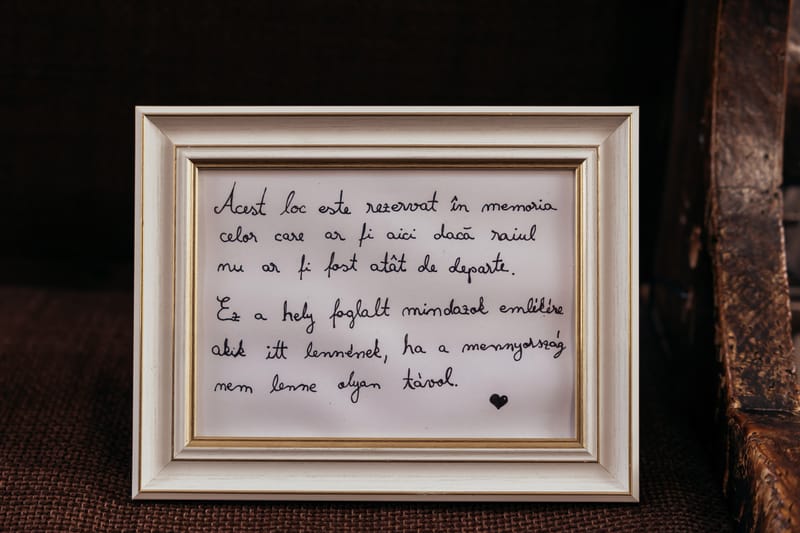 Acest loc este rezervat în memoria
celor care ar fi aici dacă raiul
nu ar fi fost atât de departe.
Ez a hely foglalt mindazok emlékére
akik itt lennének, ha a mennyország
nem lenne olyan távol.